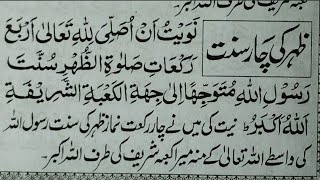 ظہر کی چار سنت
نَوَيْتُ اَنْ اُصَلِّىَ لِلّٰهِ تَعَالٰى اَرْبَعَ
رَكْعَاتِ صَلٰوةِ الظُّهْرِ سُنَّتُ
رَسُوْلِ اللّٰهِ مُتَوَجِّهًا اِلٰى جِهَةِ الْكَعْبَةِ الشَّرِيْفَةِ
اَللّٰهُ اَكْبَرُ نیت کی میں نے چار رکعت نماز ظہر کی سنت رسول اللہ
کی واسطے اللہ تعالیٰ کے منہ میرا کعبہ شریف کی طرف اللہ اکبر۔